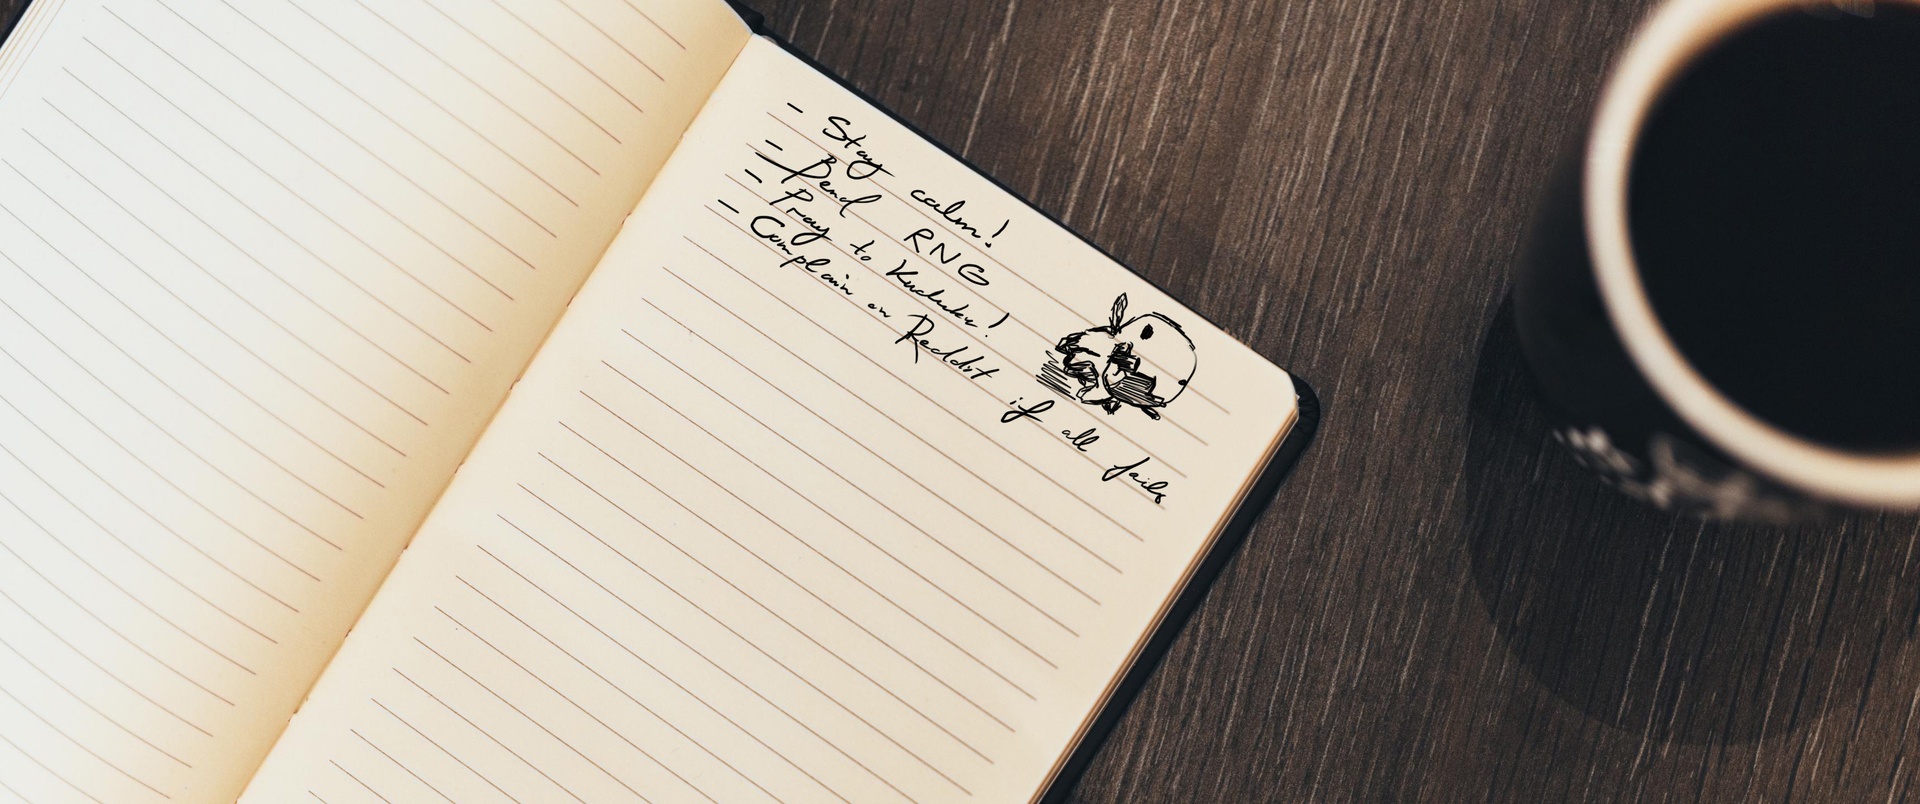 - Stay calm!
- Bend RNG
- Pray to Kuduku!
- Complain on Reddit if all fails